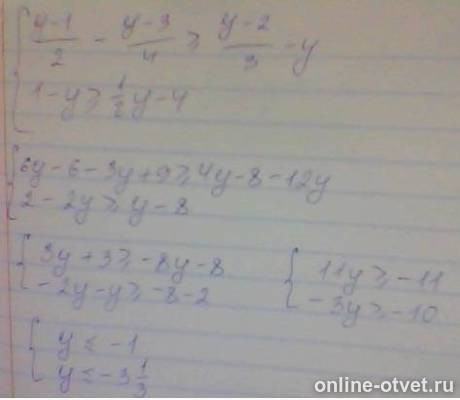 (y-1)/2 - (y-3)/4 ≥ (y-2)/3 - y
1-y ≥ 1/2 y - 4
6y-6-3y+9 ≥ 4y-8-12y
2-2y ≥ y-8
3y+3 ≥ -8y-8
-2y-y ≥ -8-2
11y ≥ -11
-3y ≥ -10
y ≤ -1
y ≤ -3 1/3
online-otvet.ru